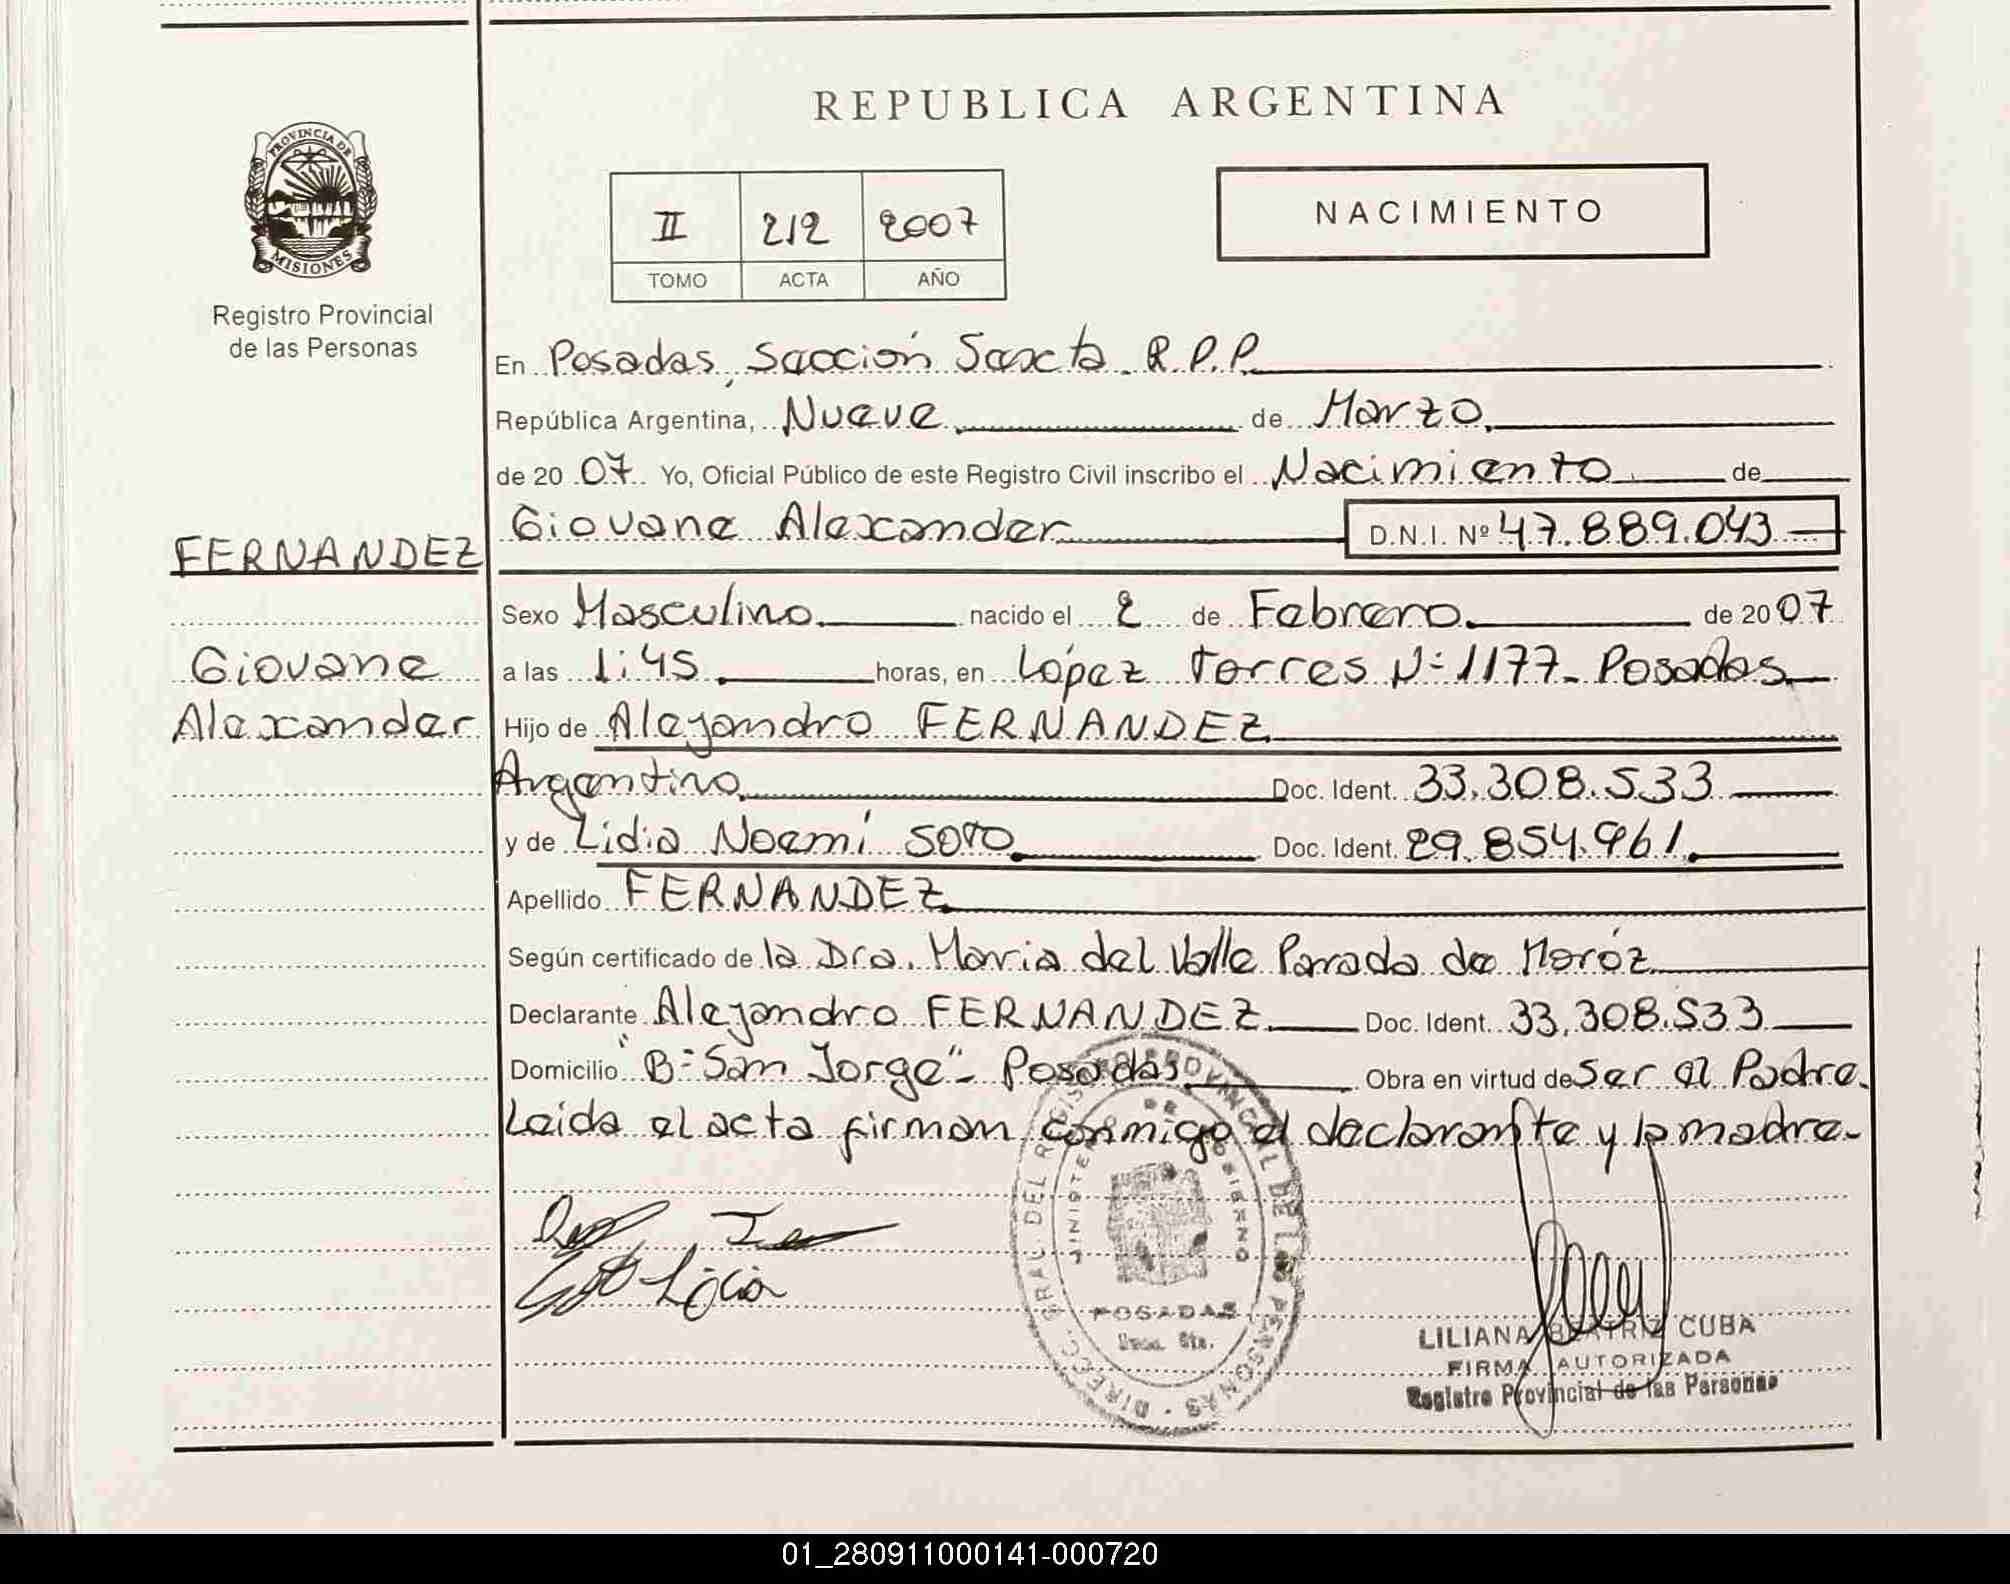 REPUBLICA ARGENTINA
PROVINCIA DE
MISIONES
Registro Provincial
de las Personas
II 212 2007
TOMO ACTA AÑO
NACIMIENTO
En Posadas, Sección Sexta R.P.P.
República Argentina, Nueve de Marzo
de 2007 Yo, Oficial Público de este Registro Civil inscribo el Nacimiento de
Giovane Alexander D.N.I. Nº 47.889.043
FERNANDEZ
Giovane
Alexander
Sexo Masculino nacido el 2 de Febrero de 2007
a las 1:45 horas, en López Torres Nº 1177 - Posadas
Hijo de Alejandro FERNANDEZ
Argentino Doc. Ident. 33.308.533
y de Lidia Noemí SOTO Doc. Ident. 29.854.961
Apellido FERNANDEZ
Según certificado de la Dra. Maria del Valle Parrada de Moróz
Declarante Alejandro FERNANDEZ Doc. Ident. 33.308.533
Domicilio "Bº San Jorge" - Posadas Obra en virtud de Ser el Padre.
Leida el acta firman conmigo el declarante y la madre.
Soto Lidia
DIRECC. GRAL. DEL REGISTRO PROVINCIAL DE LAS PERSONAS
MINISTERIO DE GOBIERNO
POSADAS
LILIANA BEATRIZ CUBA
FIRMA AUTORIZADA
Registro Provincial de las Personas
01_280911000141-000720